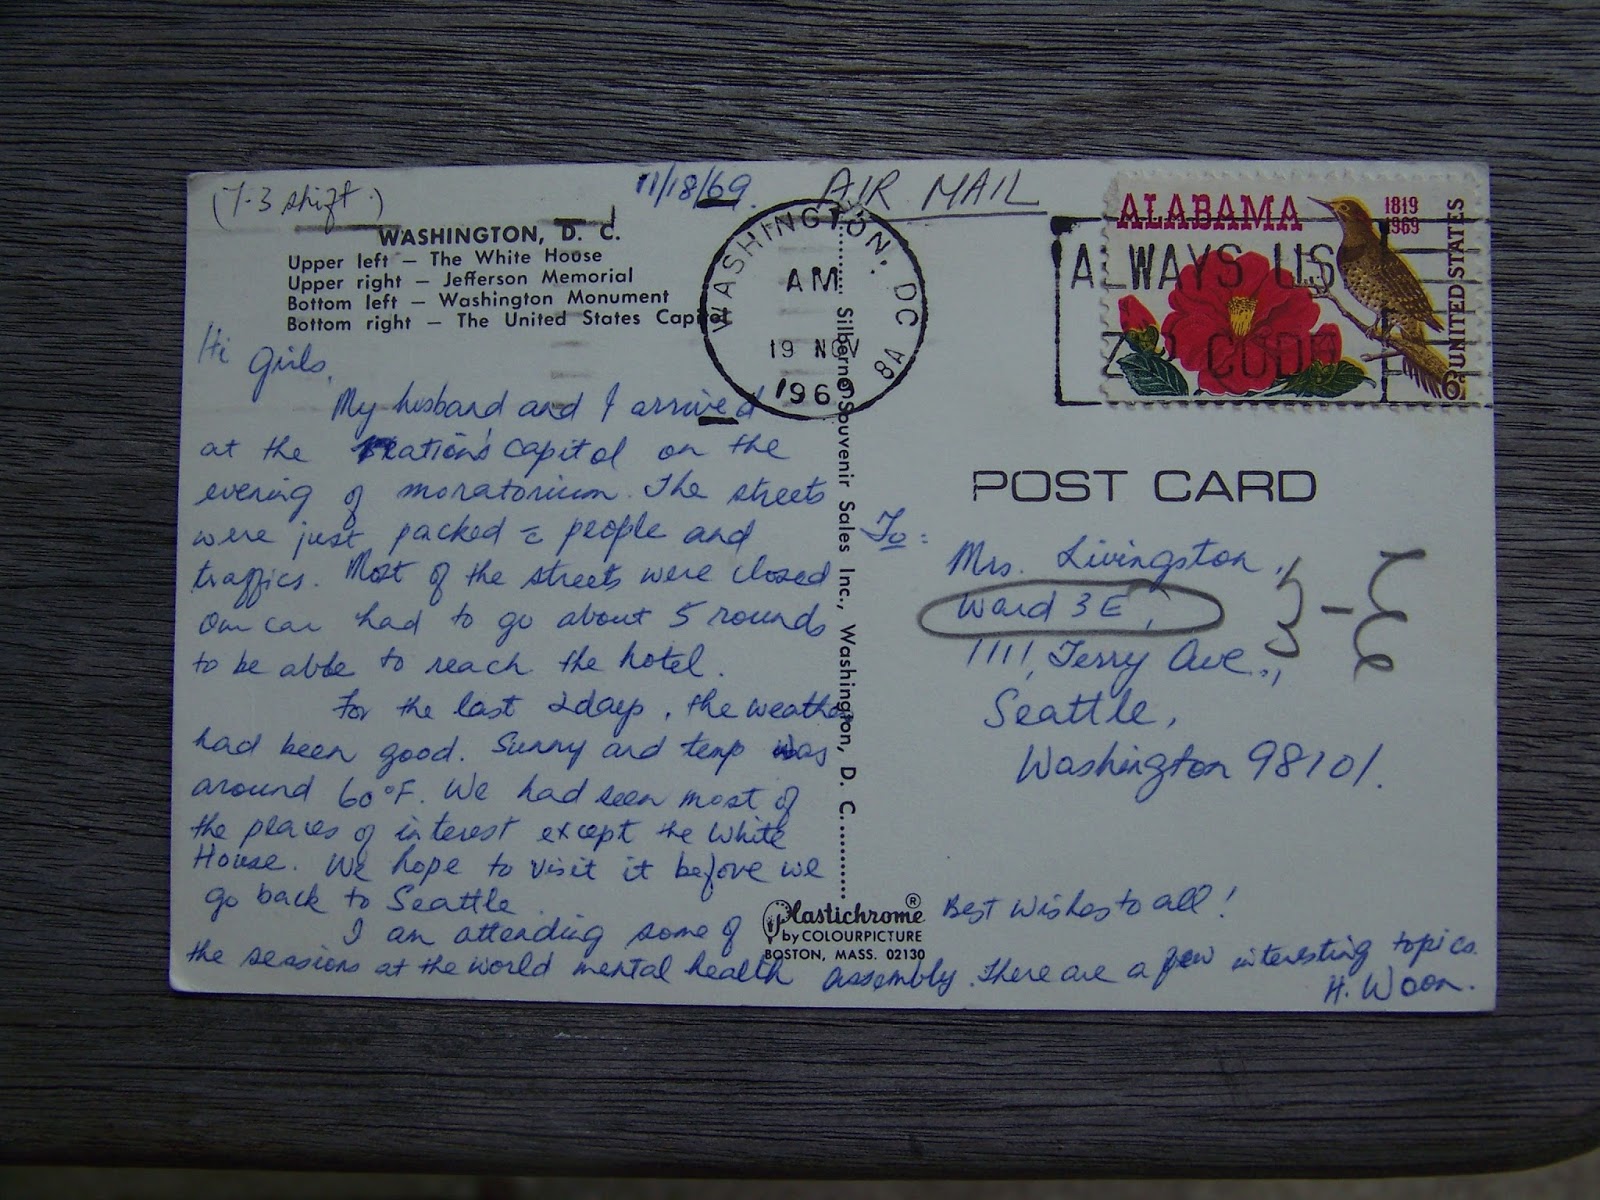 (7-3 shift.)
11/18/69.
AIR MAIL
WASHINGTON, D. C.
Upper left — The White House
Upper right — Jefferson Memorial
Bottom left — Washington Monument
Bottom right — The United States Capitol
WASHINGTON, DC
AM
19 NOV
1969
8A
ALABAMA
1819
1969
UNITED STATES
6c
ALWAYS US
ZIP CODE
Hi Girls,
My husband and I arrived
at the nation's capitol on the
evening of moratorium. The streets
were just packed c̄ people and
traffics. Most of the streets were closed
Our car had to go about 5 rounds
to be able to reach the hotel.
For the last 2 days, the weather
had been good. Sunny and temp was
around 60°F. We had seen most of
the places of interest except the White
House. We hope to visit it before we
go back to Seattle.
I am attending some of
the sessions at the world mental health assembly. There are a few interesting topics.
Best Wishes to all!
H. Woon.
Silberne Souvenir Sales Inc., Washington, D. C.
Plastichrome®
by COLOURPICTURE
BOSTON, MASS. 02130
POST CARD
To:
Mrs. Livingston,
Ward 3E,
1111, Terry Ave.,
Seattle,
Washington 98101.